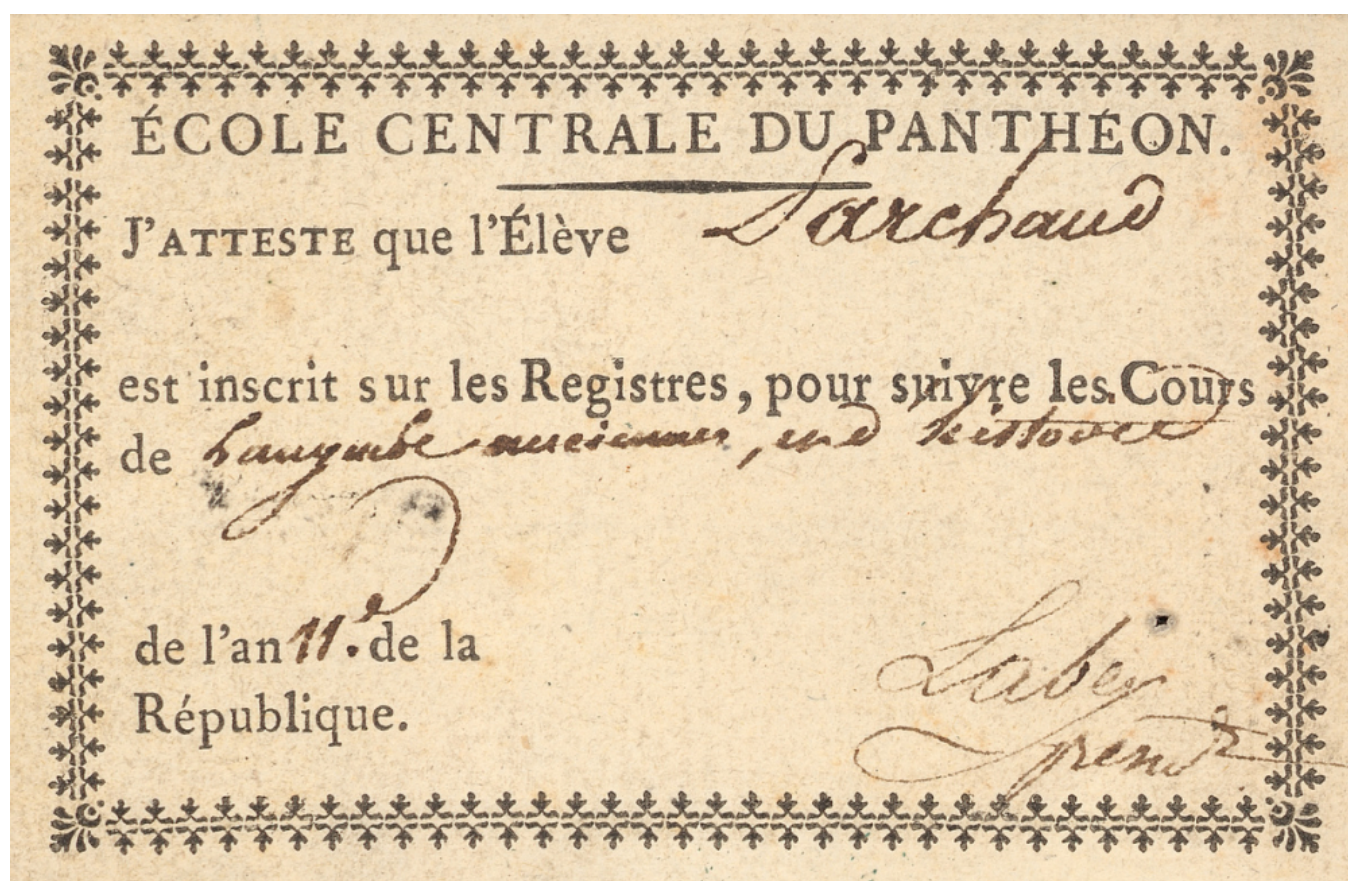 ÉCOLE CENTRALE DU PANTHÉON.
J'ATTESTE que l'Élève Larchaud
est inscrit sur les Registres, pour suivre les Cours
de anciennes, histoire
de l'an 11.e de la
République.
Labey